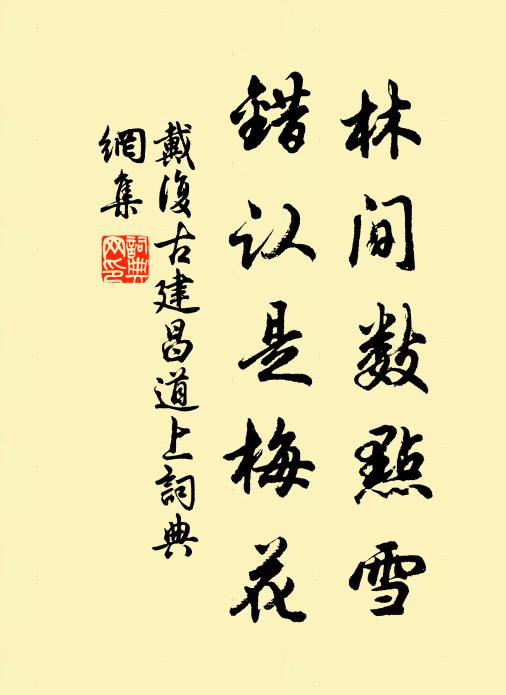 林间数點雪
錯认是梅花
戴復古建昌道上詞典
網集
詞典
网印